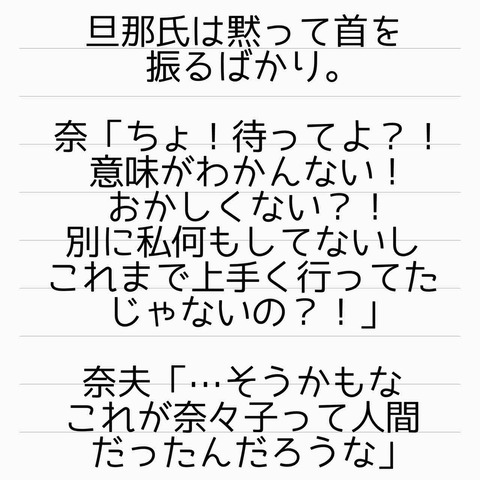 旦那氏は黙って首を
振るばかり。
奈「ちょ！待ってよ？！
意味がわかんない！
おかしくない？！
別に私何もしてないし
これまで上手く行ってた
じゃないの？！」
奈夫「…そうかもな
これが奈々子って人間
だったんだろうな」